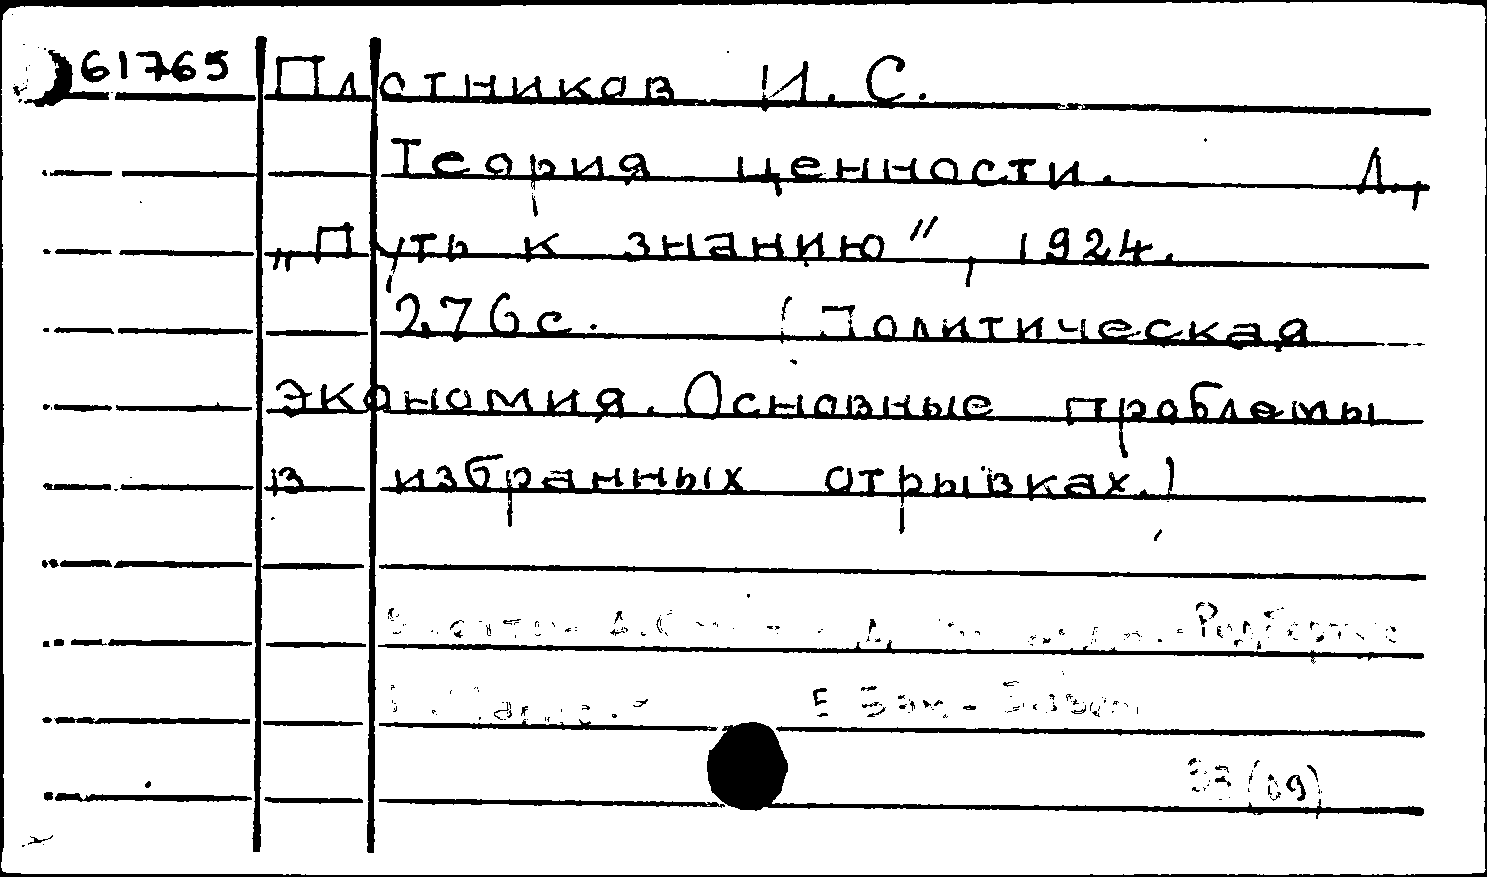 61765 Плотников И. С.
Теория ценности. Л.,
„Путь к знанию", 1924.
276 с. (Политическая
экономия. Основные проблемы
в избранных отрывках.)
Родбертус
Е Бэм-Баверк
33(09)